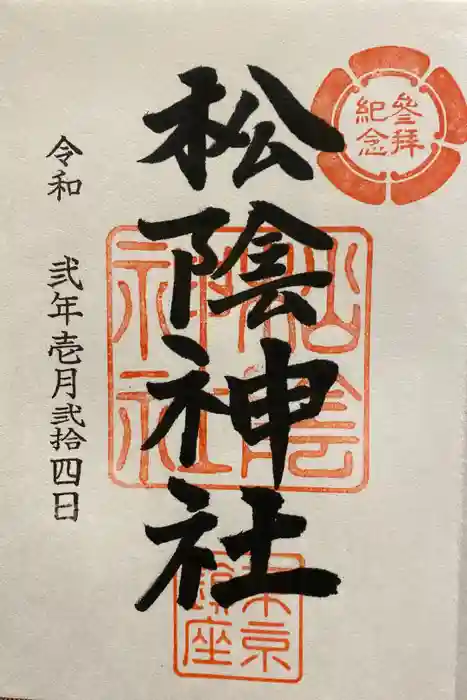 參拜
紀念
松陰神社
松陰
神社
東京
鎮座
令和 弐年壱月弐拾四日